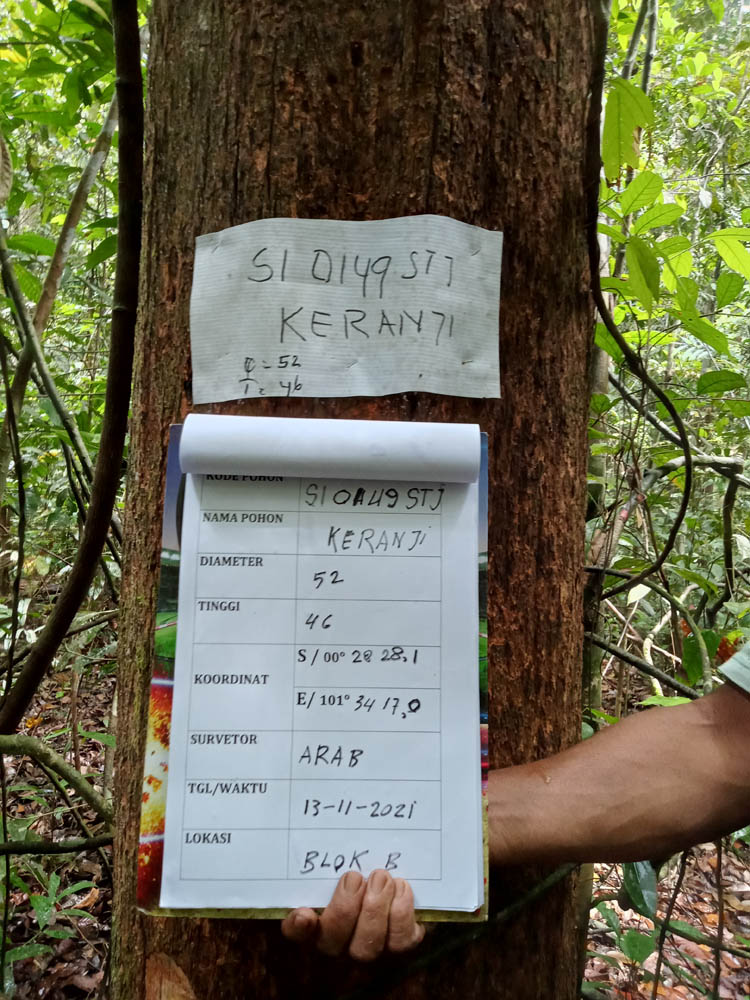 SI 0149 STJ
KERANJI
φ = 52
T = 46
KODE POHON SI 0149 STJ
NAMA POHON KERANJI
DIAMETER 52
TINGGI 46
KOORDINAT S / 00° 28 28,1
E/ 101° 34 17,0
SURVETOR ARAB
TGL/WAKTU 13-11-2021
LOKASI BLOK B